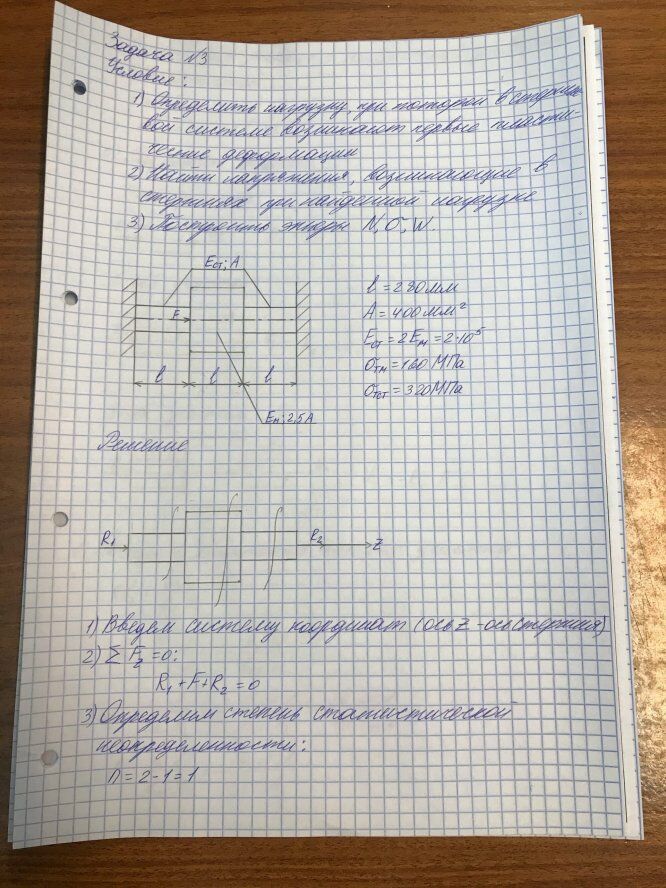 Задача №3
Условие:
1) Определить нагрузку, при которой в стержне-
вой системе возникают первые пласти-
ческие деформации
2) Найти напряжения, возникающие в
стержнях при найденной нагрузке
3) Построить эпюры N, σ, W.
Eст; A
F
l l l
Eм; 2,5A
l = 280мм
A = 400мм²
Eст = 2Eм = 2·10⁵
σтм = 160 МПа
σтст = 320МПа
Решение
R₁ R₂ z
1) Введем систему координат (ось z - ось стержня)
2) Σ Fz = 0:
R₁ + F + R₂ = 0
3) Определим степень статистической
неопределенности:
n = 2 - 1 = 1